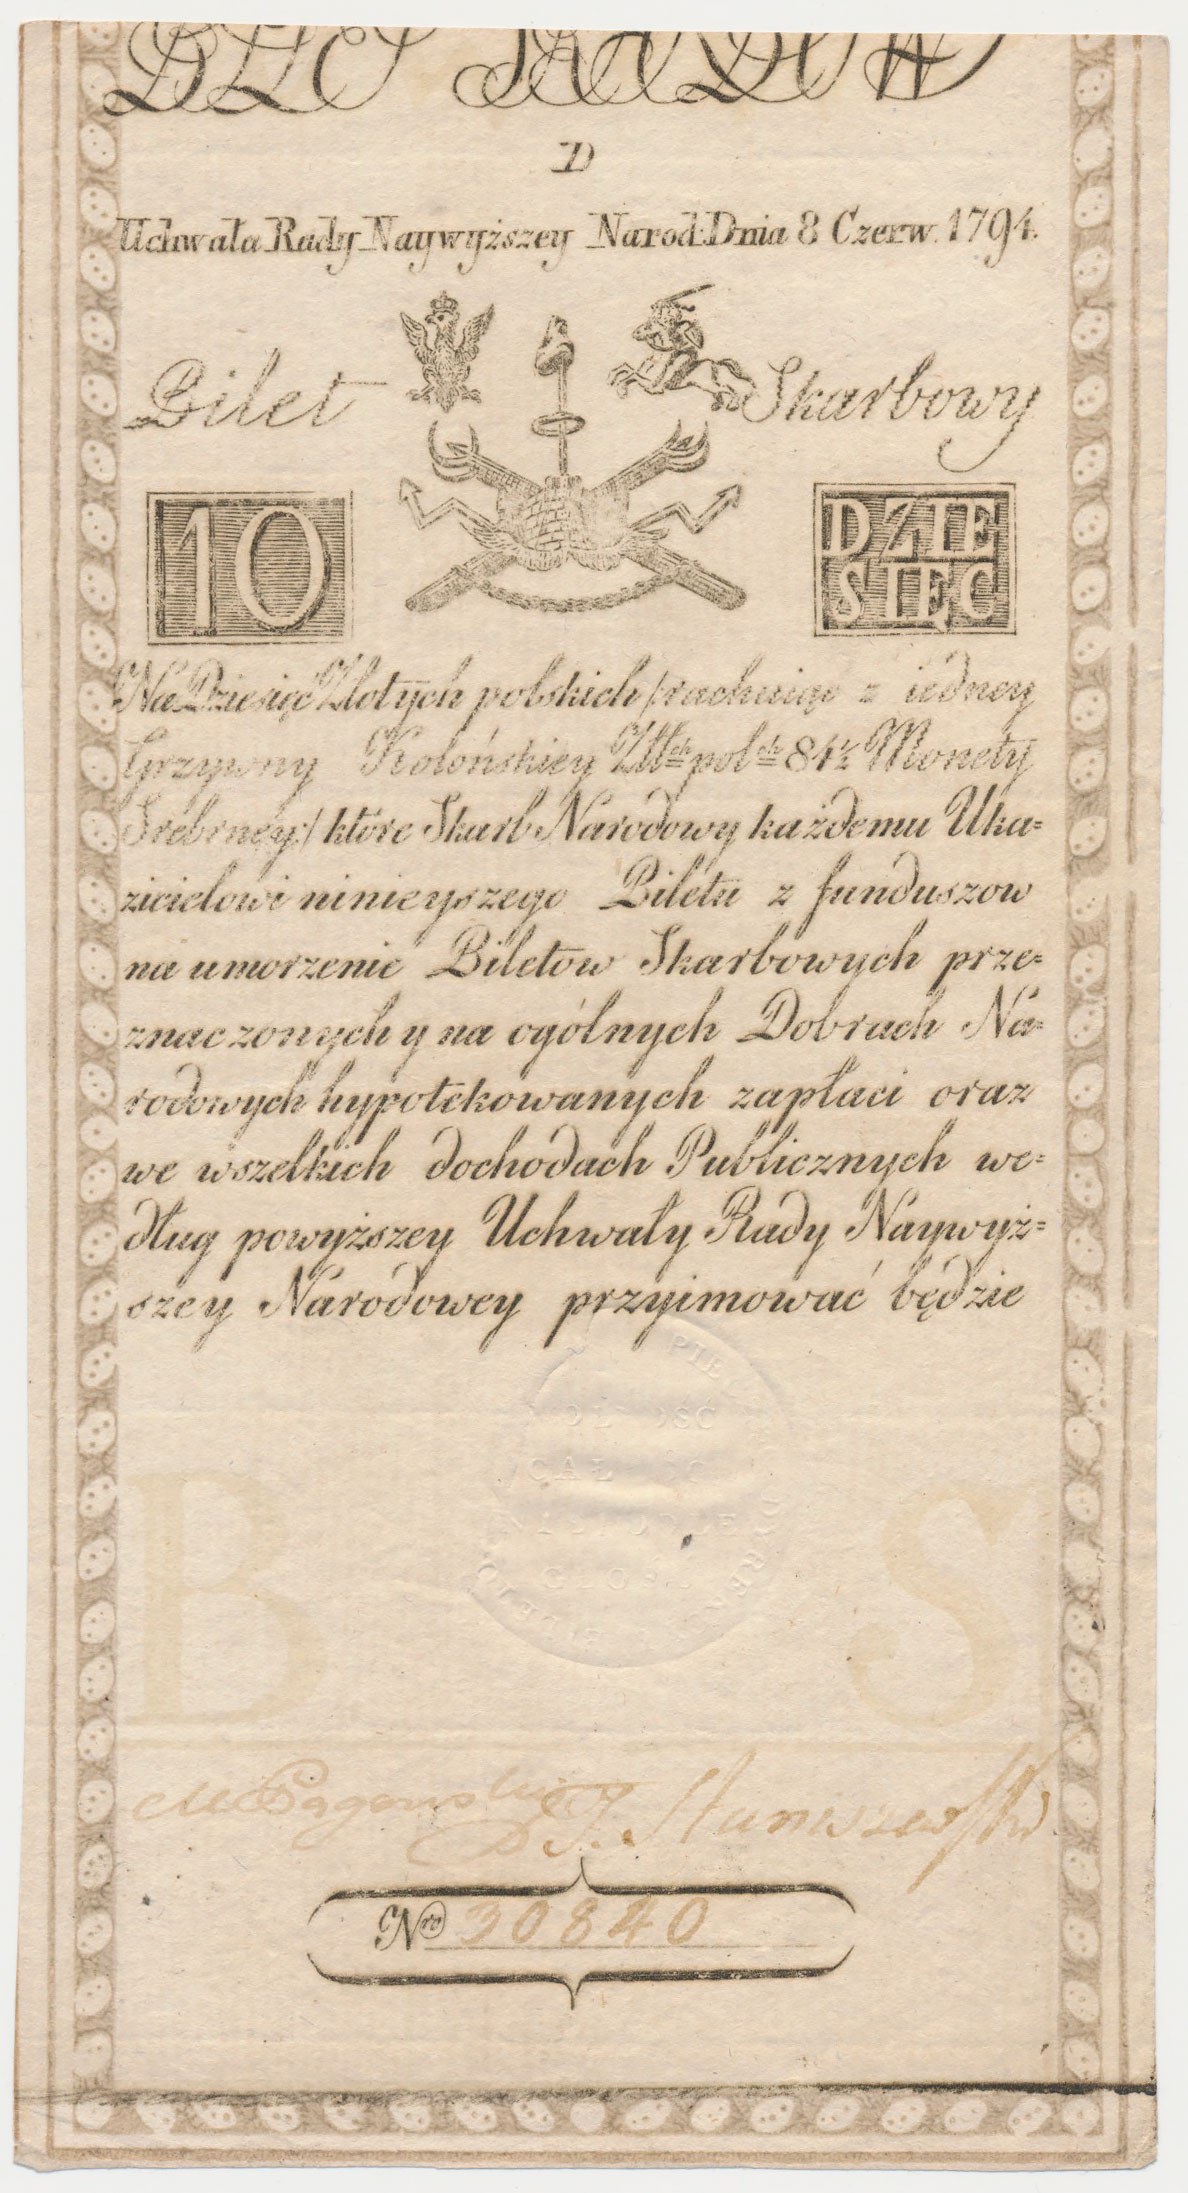 D
Uchwała Rady Naywyższey Narod: Dnia 8 Czerw. 1794.
Bilet Skarbowy
10
DZIE
SIĘC
Na Dziesięć Złotych polskich /:rachuiąc z iedney
Grzywny Kolońskiey Złł:ch pol:ch 84½ Monety
Srebrney:/ które Skarb Narodowy każdemu Uka=
zicielowi ninieyszego Biletu z funduszow
na umorzenie Biletow Skarbowych prze=
znaczonych y na ogólnych Dobrach Na=
rodowych hypotekowanych zapłaci oraz
we wszelkich dochodach Publicznych we=
dług powyższey Uchwały Rady Naywyż=
szey Narodowey przyimować będzie
B S
Nro 30840